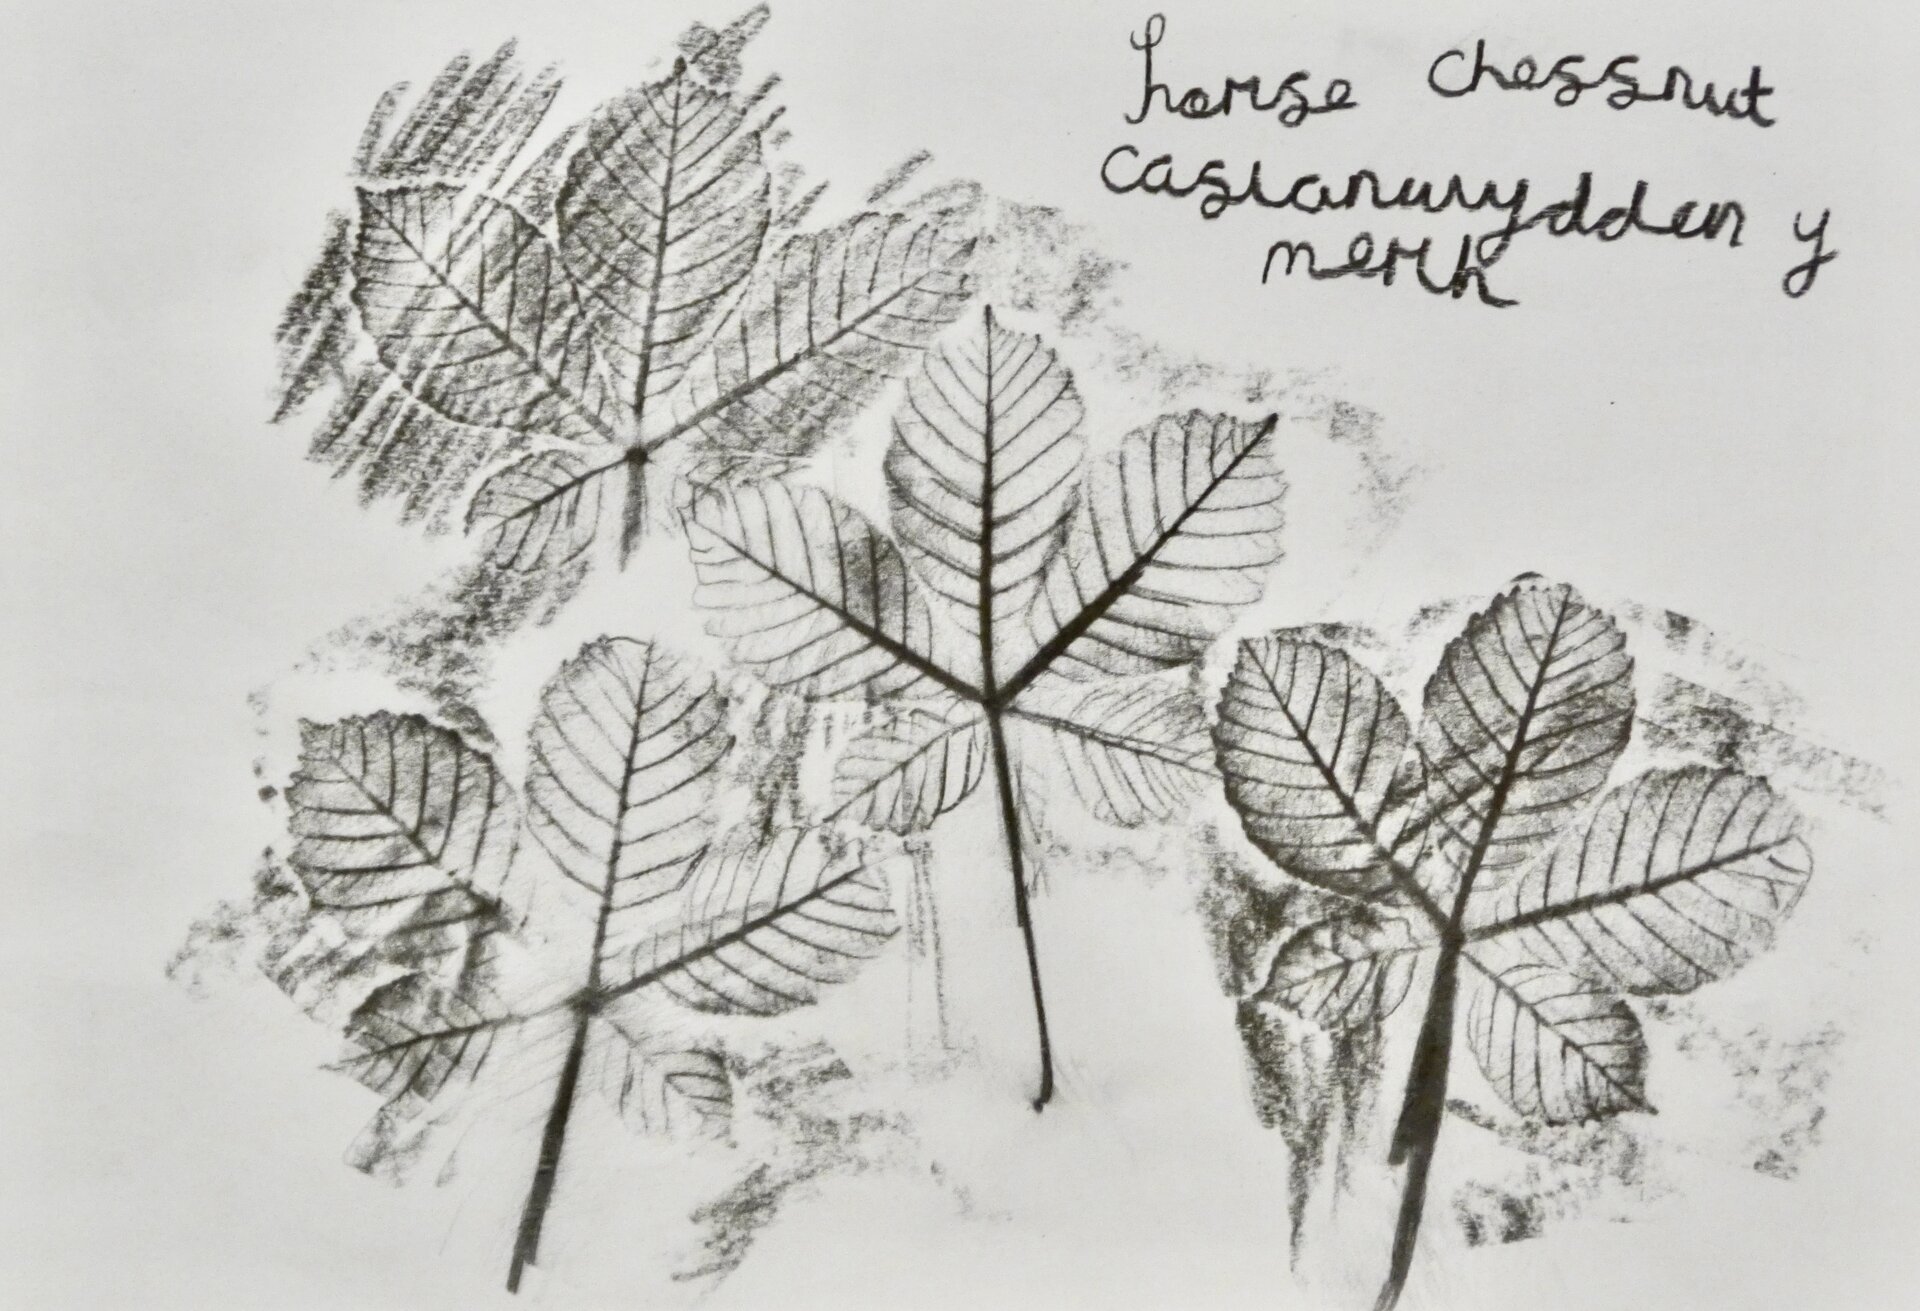 horse chessnut
castanwydden y
merch